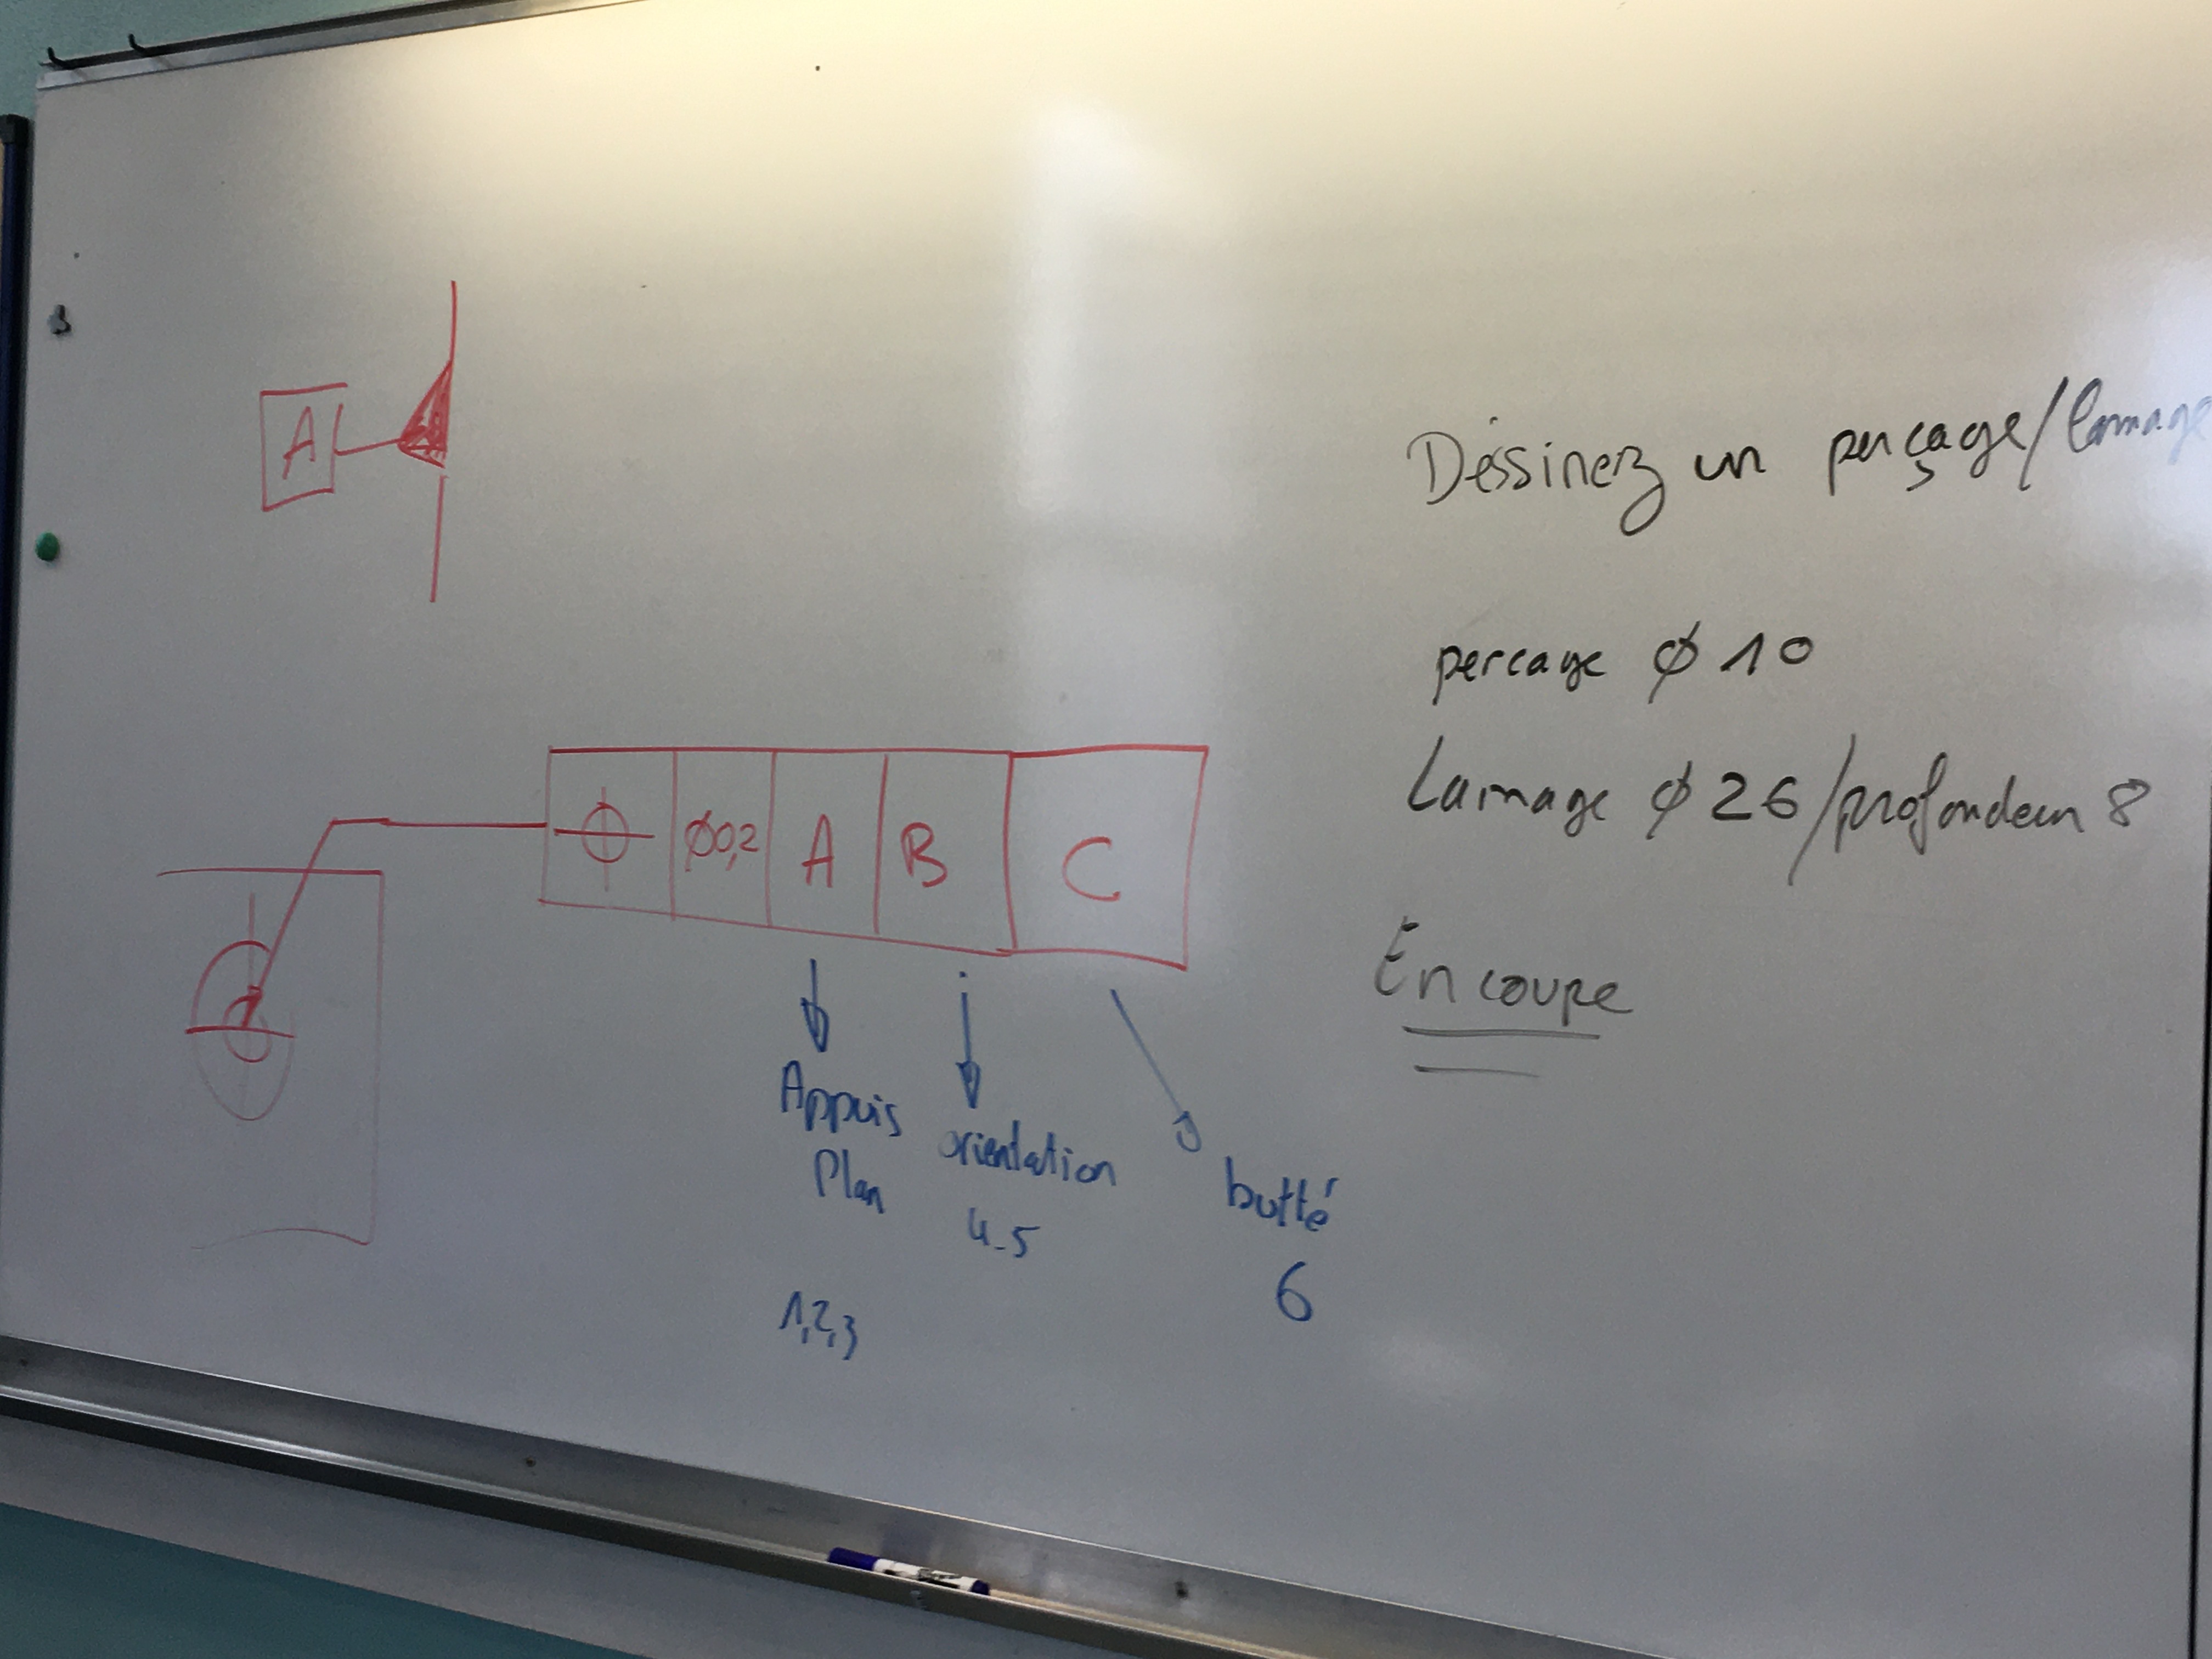 A
Déssinez un perçage/lamage
percage Ø 10
Lamage Ø 26/profondeur 8
En coupe
Ø0,2 A B C
Appuis
Plan
1,2,3
orientation
4-5
butté
6